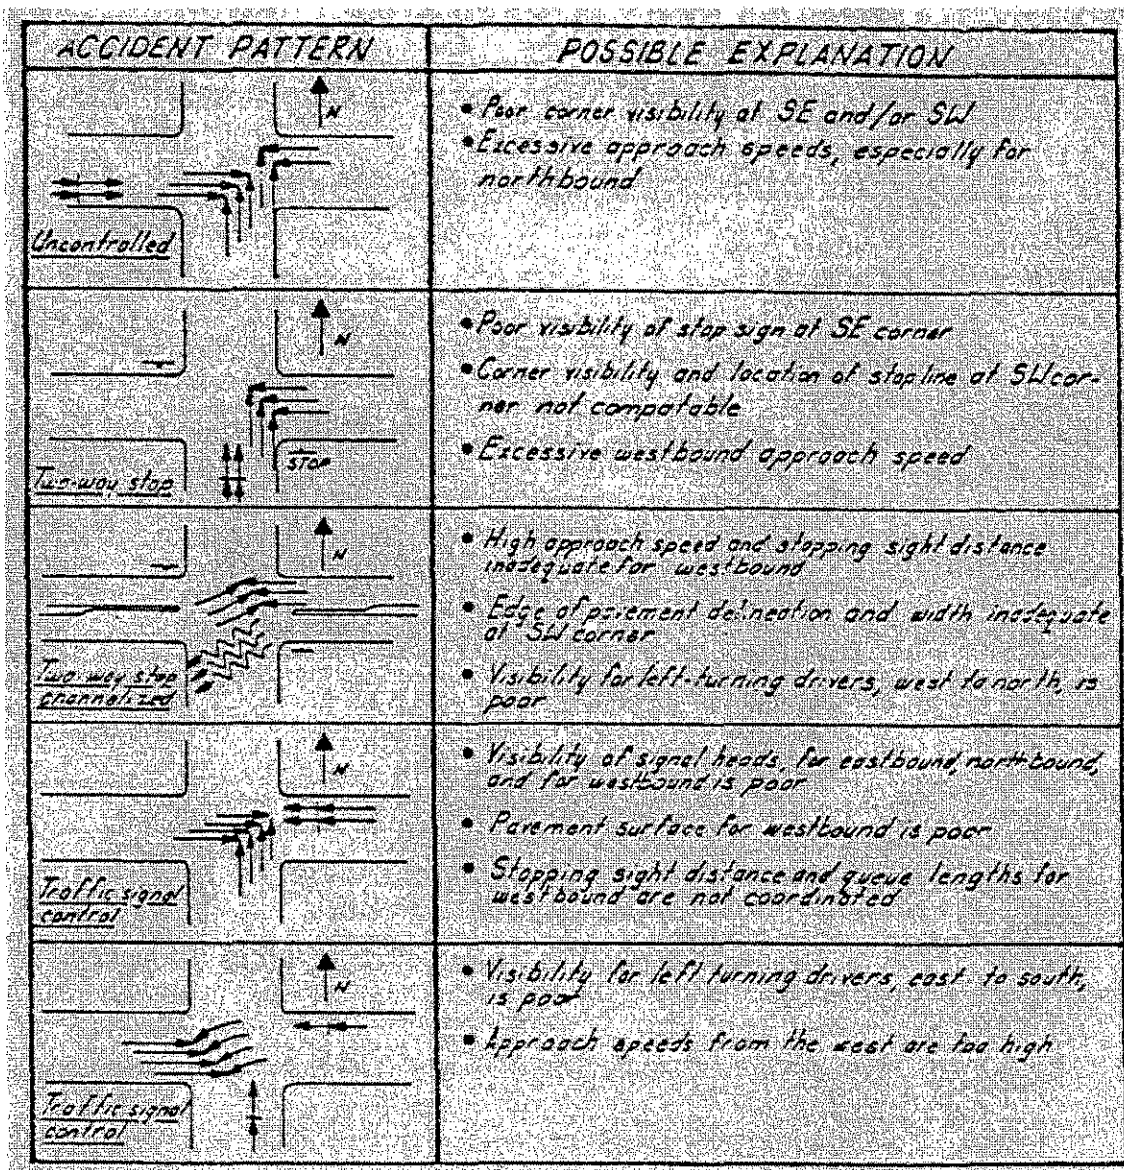 ACCIDENT PATTERN
POSSIBLE EXPLANATION
N
Uncontrolled
• Poor corner visibility at SE and/or SW
• Excessive approach speeds, especially for
northbound
N
STOP
Two-way stop
• Poor visibility of stop sign at SE corner
• Corner visibility and location of stop line at SW cor-
ner not compatable
• Excessive westbound approach speed
N
Two way stop
channelized
• High approach speed and stopping sight distance
inadequate for westbound
• Edge of pavement delineation and width inadequate
at SW corner
• Visibility for left-turning drivers, west to north, is
poor
N
Traffic signal
control
• Visibility of signal heads, for eastbound, northbound,
and for westbound is poor
• Pavement surface for westbound is poor
• Stopping sight distance and queue lengths for
westbound are not coordinated
N
Traffic signal
control
• Visibility for left turning drivers, east to south,
is poor
• Approach speeds from the west are too high